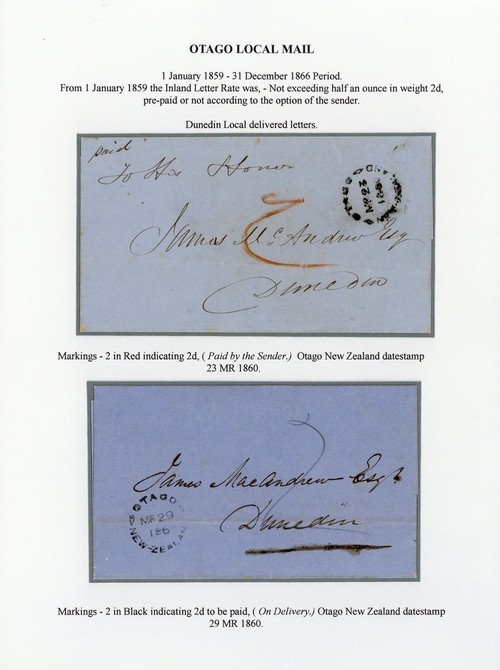 OTAGO LOCAL MAIL
1 January 1859 - 31 December 1866 Period.
From 1 January 1859 the Inland Letter Rate was, - Not exceeding half an ounce in weight 2d,
pre-paid or not according to the option of the sender.
Dunedin Local delivered letters.
paid
To His Honor
James McAndrew Esq
Dunedin
2
OTAGO
MR 23
Markings - 2 in Red indicating 2d, ( Paid by the Sender.) Otago New Zealand datestamp
23 MR 1860.
2
James MacAndrew Esqr
Dunedin
OTAGO
MR 29
186
NEW-ZEALAN
Markings - 2 in Black indicating 2d to be paid, ( On Delivery.) Otago New Zealand datestamp
29 MR 1860.